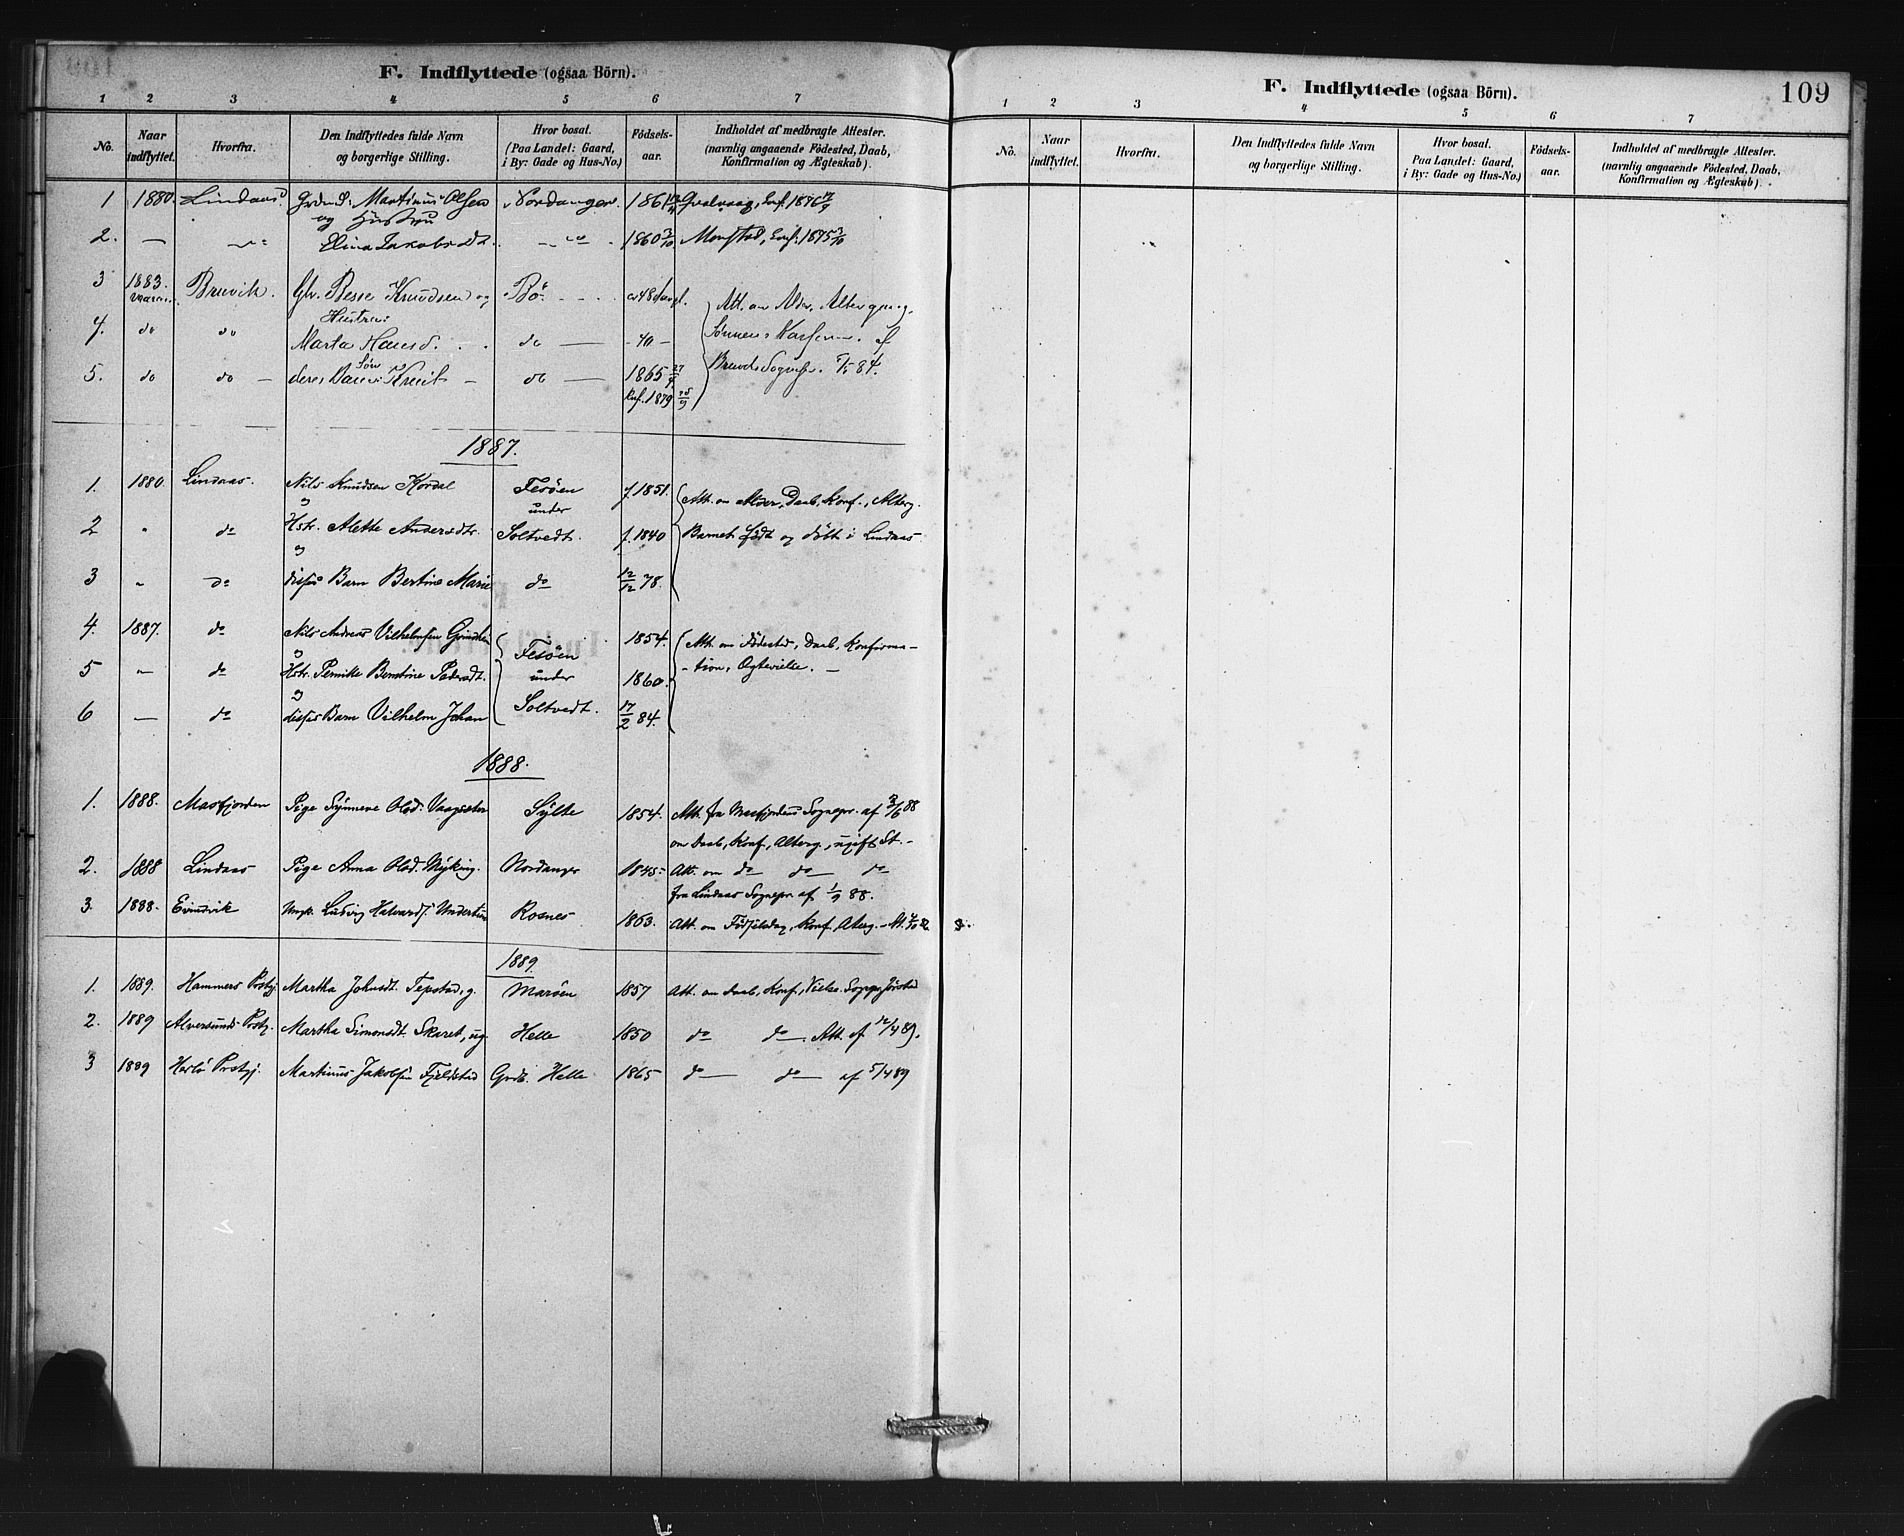 F. Indflyttede (ogsaa Börn).
1 2 3 4 5 6 7
No. Naar indflyttet. Hvorfra. Den Indflyttedes fulde Navn og borgerlige Stilling. Hvor bosat. (Paa Landet: Gaard, i By: Gade og Hus-No.) Födsels-aar. Indholdet af medbragte Attester. (navnlig angaaende Födested, Daab, Konfirmation og Ægteskab).
1 1880. Lindaas. Martinus Olsen Nordanger. 1861 1876
og Hustru
2. — Elina Jakobsdt. 1860 3/10 Monstad, Conf. 1875 3/10
3 1883. Bruvik. Besse Knudsen og Bö
Hustru:
4. do do Marta Hansd. do — 40 —
5. do do — deres Søn Knut — do — 1865
Knf. 1879
1887.
1. 1880. Lindaas. Nils Knudsen Kordal Fesöen f. 1851. Att. om Alder, Daab, Konf., Alterg.
og under
2 " do Hstr. Alette Andersdtr. Soltvedt. f. 1840 Barnet födt og döbt i Lindaas
og
3 " do disses Barn Bertine Marie do 12/12 78.
4. 1887. do Nils Andreas Vilhelmsen 1854. Att. om Födested, Daab, Konfirma-
og Fesöen
5 — do Hstr. Bemtine Pedersdt. under 1860. -tion, Ægtevielse. —
og
6 — do disses Barn Vilhelm Johan Soltvedt. 17/2 84.
1888.
1. 1888. Masfjorden Pige Synneve Olsd. Sylte 1854. Att. fra Masfjordens Sognepr. af 3/6 88
om Daab, Konf, Alterg., ugift St. -
2. 1888 Lindaas Pige Anna Olsd. Myking. Nordanger 1845- Att. om do do do
fra Lindaas Sognepr. af 1/9 88.
3. 1888. Evindvik Ungk. Ludvig Halvardsf. Rosnes 1863. Att. om Födselsdag, Konf. Alterg. -
1889.
1. 1889. Hammers Prstgj. Martha Johnsdt. Tepstad, g. Maröen 1857 Att. om Daab, Konf., Vielse.
2. 1889 Alversunds Prstgj. Martha Simonsdt. Skaret, ug. Helle 1850 do do. Att. af 12/4 89.
3 1889 Herlö Prstgj. Martinus Jakobsen Fjeldstad Grdb. Helle 1865 do do af 5/4 89
F. Indflyttede (ogsaa Börn). 109
1 2 3 4 5 6 7
No. Naar indflyttet. Hvorfra. Den Indflyttedes fulde Navn og borgerlige Stilling. Hvor bosat. Paa Landet: Gaard, i By: Gade og Hus-No.) Födsels-aar. Indholdet af medbragte Attester. (navnlig angaaende Födested, Daab, Konfirmation og Ægteskab).